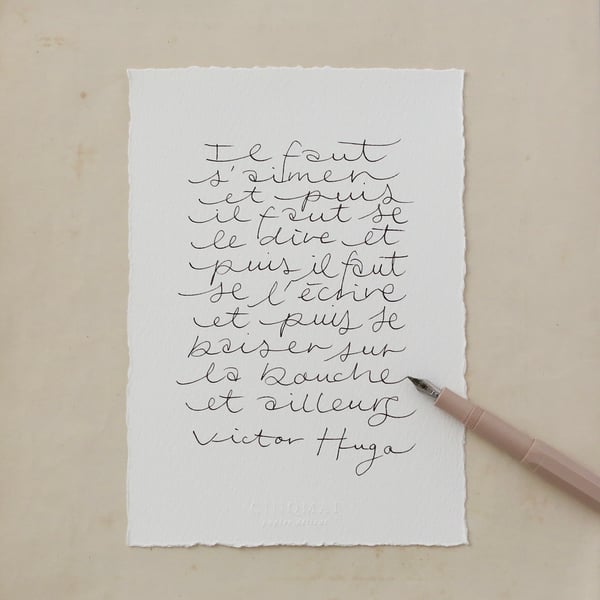 Il faut
s'aimer
et puis
il faut se
le dire et
puis il faut
se l'écrire
et puis se
baiser sur
la bouche
et ailleurs
Victor Hugo